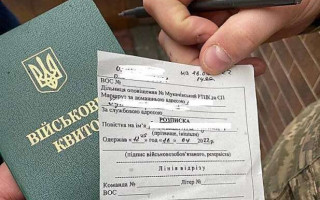 ВІЙСЬКОВИЙ
КВИТОК
О.
на 18.0
ВОС №
Дільниця оповіщення № Мукачівський РТЦК та СП
Маршрут за домашньою адресою
За службовою адресою
РОЗПИСКА
Повістка на ім'я
(прізвище, ініціали)
Одержав «
2022р.
(підпис військовозобов'язаного, резервіста)
Лінія відрізу
Команда №
Літер №
ВОС